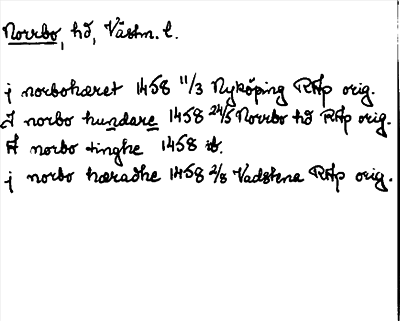 Norrbo, hd, Västm. l.
j norbohæret 1458 11/3 Nyköping RAp orig.
J norbo hundare 1458 24/5 Norrbo hd RAp orig.
A norbo tinghe 1458 ib.
j norbo hæradhe 1458 2/8 Vadstena RAp orig.